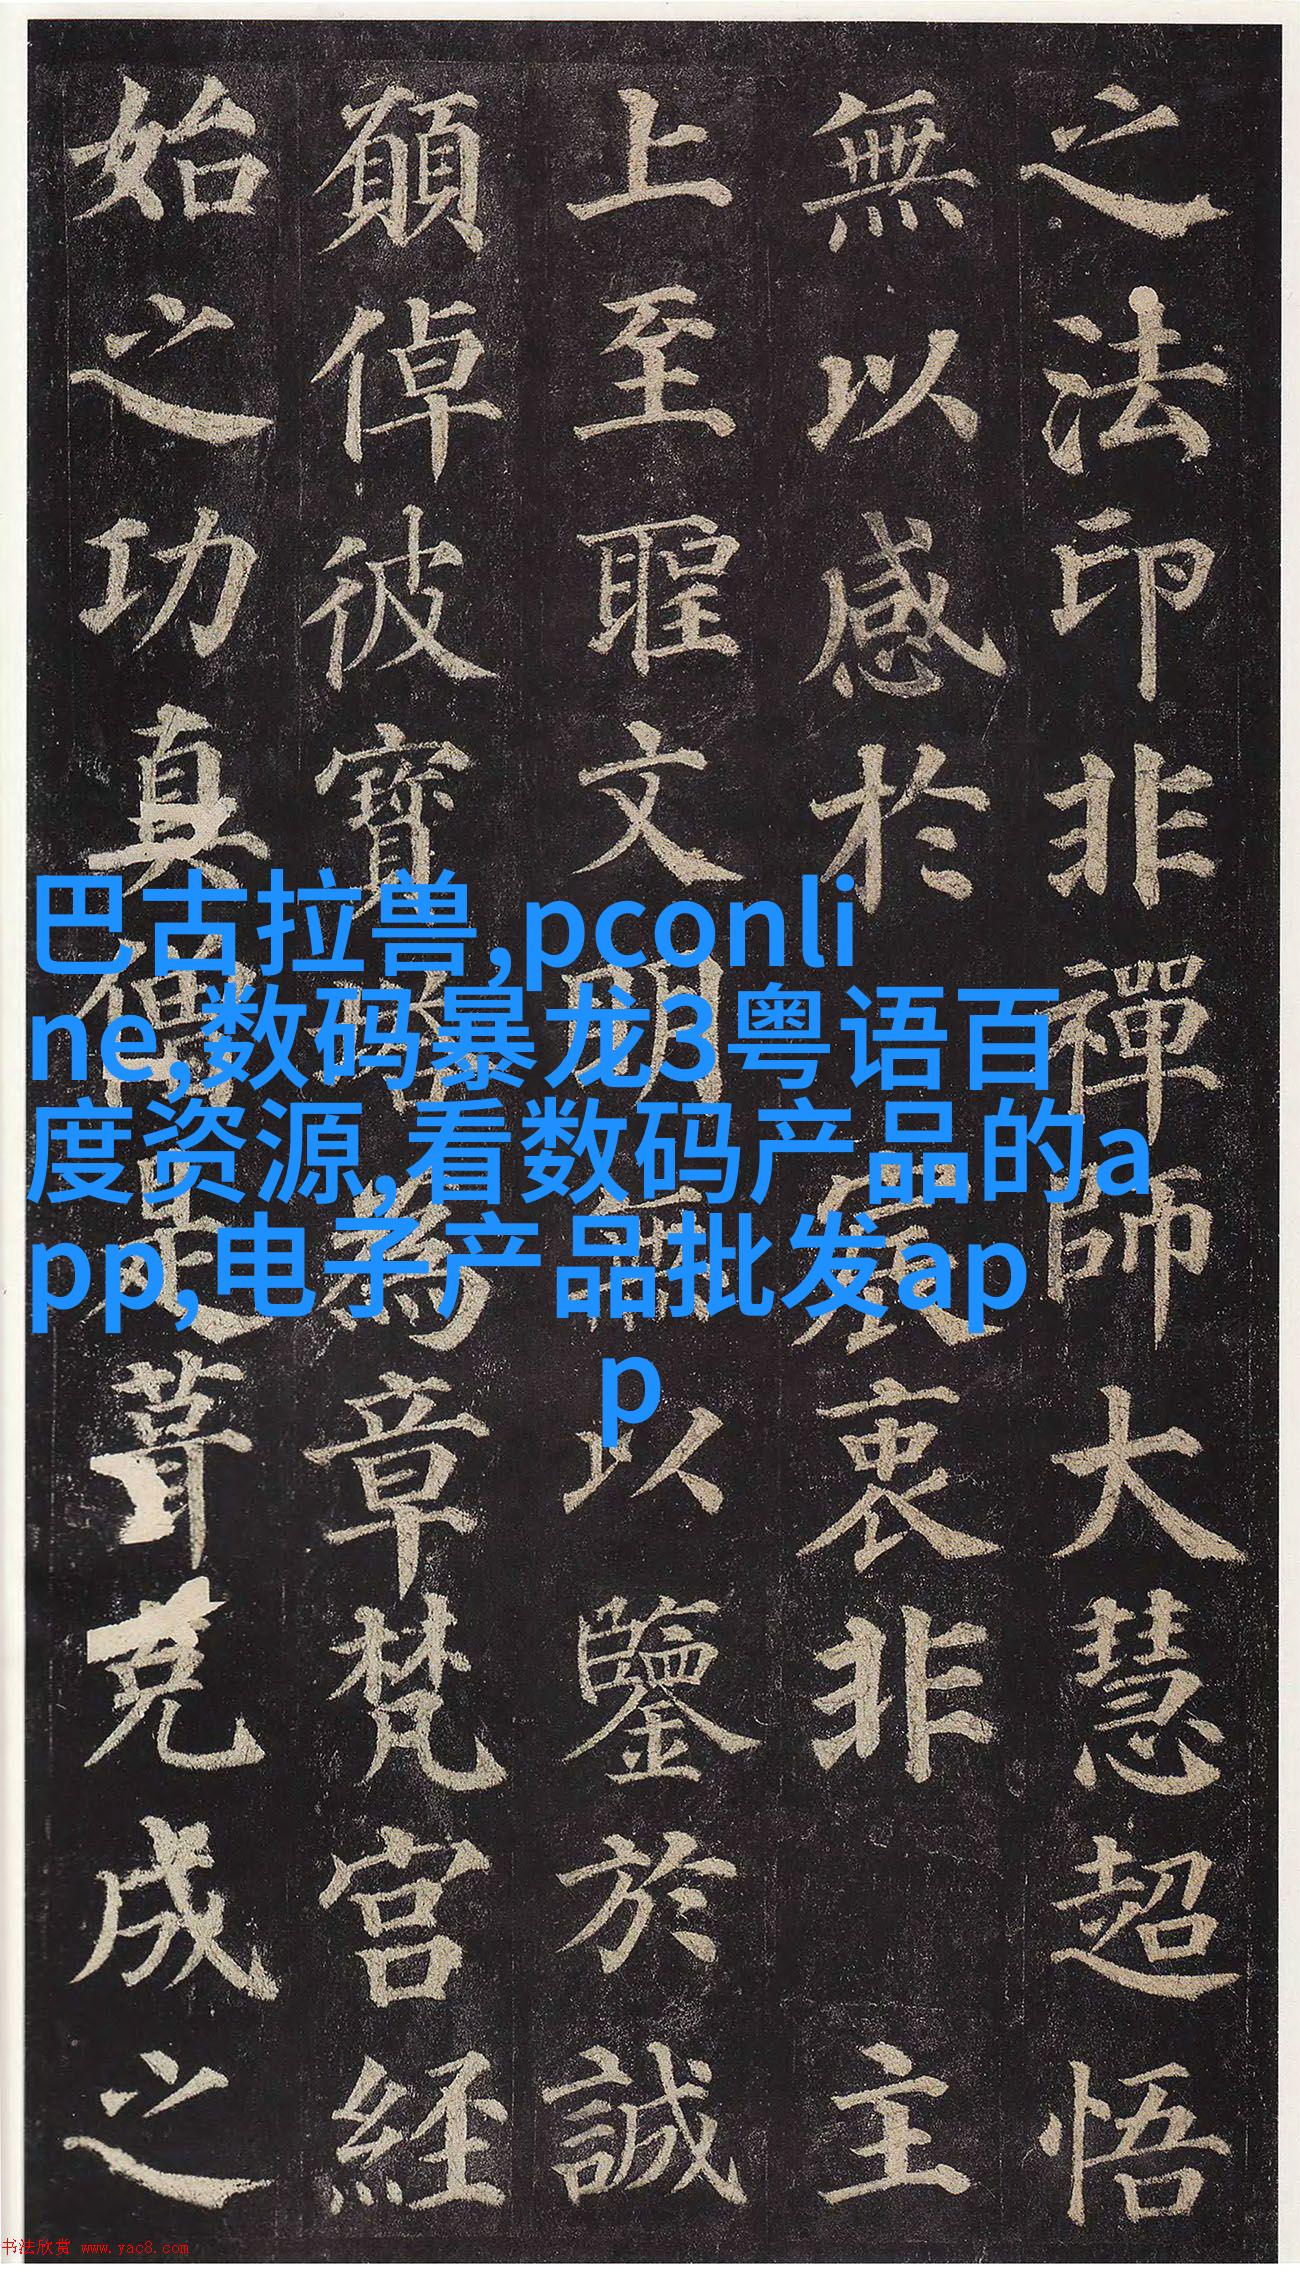 之法印非禪師大慧超悟
無以感於宸衷非主
上至聖文明無以鑒於誠
願倬彼寶塔為章梵宮經
始之功真僧是葺克成之
巴古拉兽,pconli
ne,数码暴龙3粤语百
度资源,看数码产品的a
pp,电子产品批发ap
p
书法欣赏 www.yac8.com